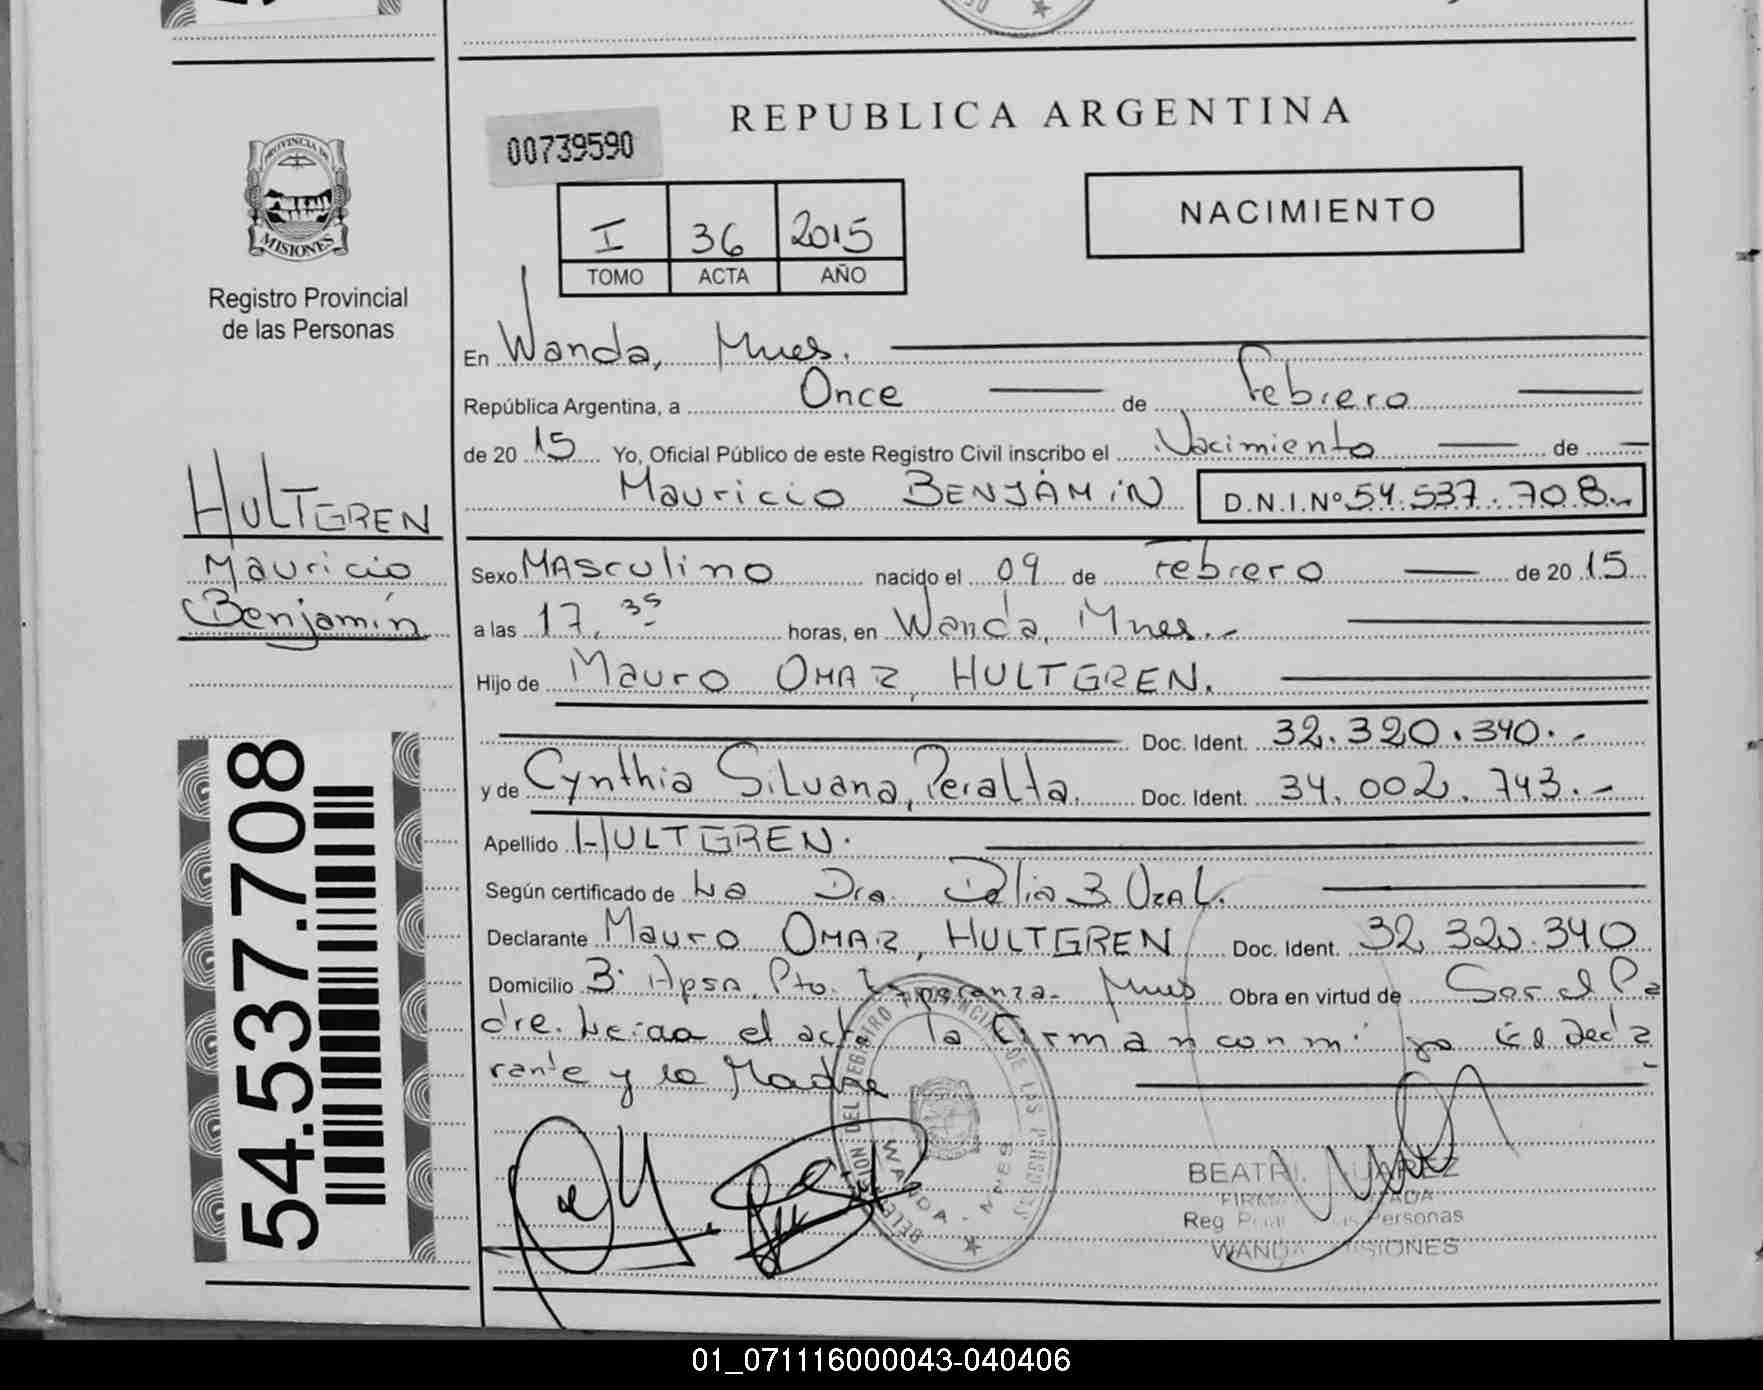 REPUBLICA ARGENTINA
00739590
NACIMIENTO
I 36 2015
TOMO ACTA AÑO
PROVINCIA DE
MISIONES
Registro Provincial
de las Personas
En Wanda, Mnes.
República Argentina, a Once de Febrero
de 2015 Yo, Oficial Público de este Registro Civil inscribo el Nacimiento de
Mauricio BENJAMIN D.N.I.Nº 54.537.708.-
HULTGREN
Mauricio
Benjamín
Sexo MAsculino nacido el 09 de Febrero de 2015
a las 17,35 horas, en Wanda, Mnes.-
Hijo de Mauro OMAR, HULTGREN.
Doc. Ident. 32.320.340.-
y de Cynthia Silvana, Peralta. Doc. Ident. 34.002.743.-
Apellido HULTGREN.
Según certificado de La Dra. Delia B.
Declarante Mauro OMAR, HULTGREN Doc. Ident. 32.320.340
Domicilio Bº Apsa, Pto. Esperanza. Mnes Obra en virtud de Ser el Pa
dre. Leida el acta la Firman conmigo El Decla
rante y la Madre
54.537.708
DEL REGISTRO PROVINCIAL DE LAS PERSONAS
WANDA - MNES
BEATRI
Reg Personas
WANDA MISIONES
01_071116000043-040406